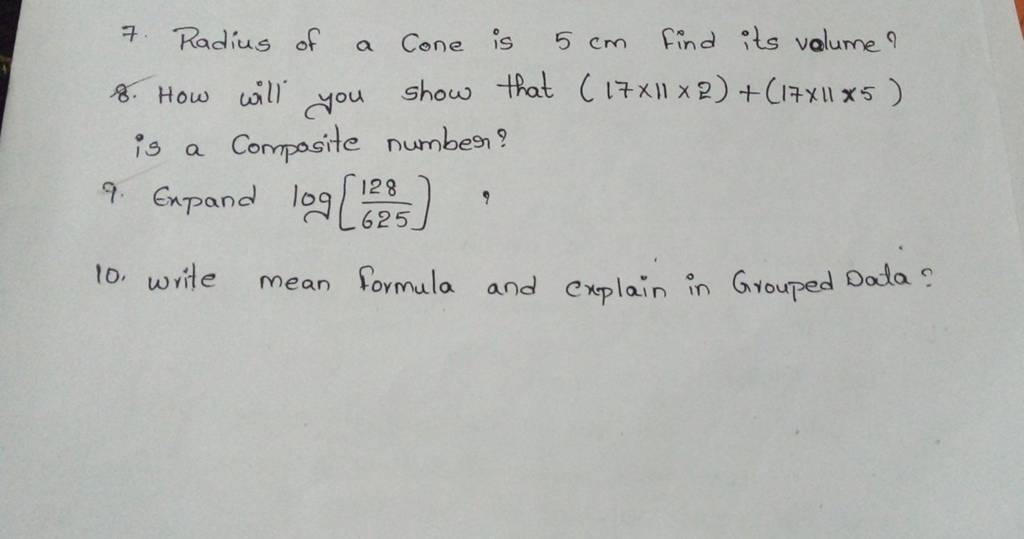 7. Radius of a Cone is 5 cm find its volume?
8. How will you show that (17×11×2)+(17×11×5)
is a Composite number?
9. Expand log[128/625] ?
10. write mean formula and explain in Grouped Data?